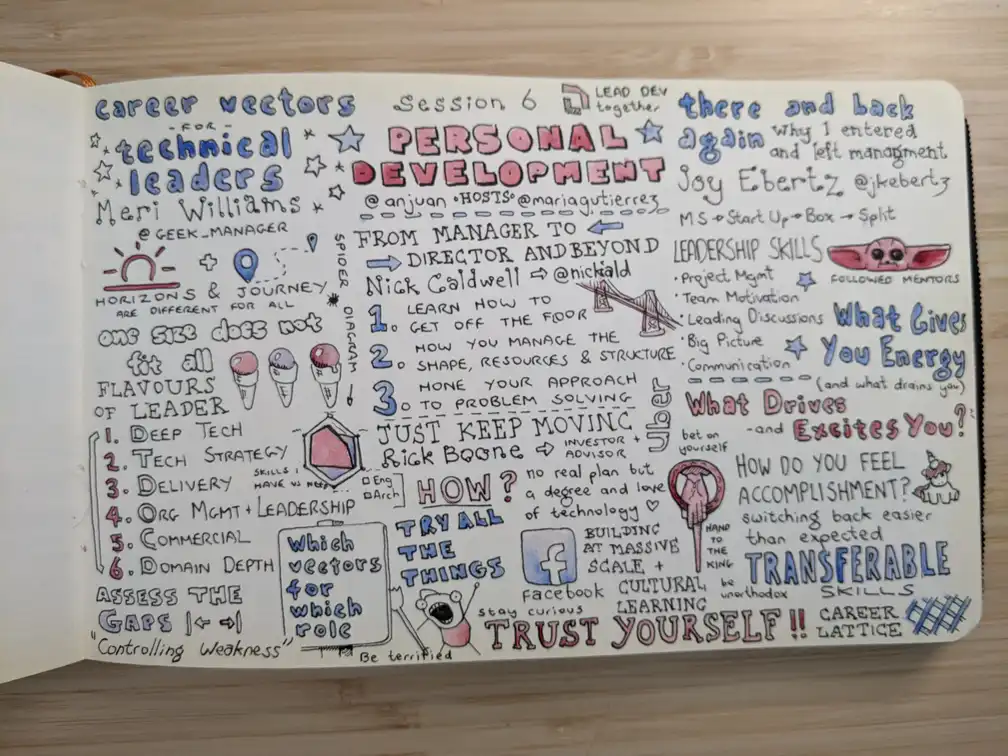 career vectors
- FOR -
technical
leaders
Meri Williams
@GEEK_MANAGER
+
HORIZONS & JOURNEY
ARE DIFFERENT FOR ALL
one size does not
fit all
FLAVOURS
OF LEADER
1. DEEP TECH
2. TECH STRATEGY
3. DELIVERY
4. ORG MGMT + LEADERSHIP
5. COMMERCIAL
6. DOMAIN DEPTH
SPIDER
DIAGRAM
SKILLS I
HAVE VS NEED
Eng
Arch
ASSESS THE
GAPS
"Controlling Weakness"
Which
vectors
for
which
role
Session 6
LEAD DEV
together
PERSONAL
DEVELOPMENT
@anjuan •HOSTS• @mariagutierrez
FROM MANAGER TO
DIRECTOR AND BEYOND
Nick Caldwell ⇨ @nickald
1. LEARN HOW TO
GET OFF THE FLOOR
2. HOW YOU MANAGE THE
SHAPE, RESOURCES & STRUCTURE
3. HONE YOUR APPROACH
TO PROBLEM SOLVING
JUST KEEP MOVING
Rick Boone ⇨ INVESTOR +
ADVISOR
Uber
HOW?
no real plan but
a degree and love
of technology ♡
TRY ALL
THE
THINGS
f
facebook
BUILDING
AT MASSIVE
SCALE +
CULTURAL
LEARNING
stay curious
Be terrified
TRUST YOURSELF!!
there and back
again why I entered
and left managment
Joy Ebertz @jkebertz
MS → Start Up → Box → Split
LEADERSHIP SKILLS
• Project Mgmt
• Team Motivation
• Leading Discussions
• Big Picture
• Communication
FOLLOWED MENTORS
What Gives
You Energy
(and what drains you)
What Drives
- and Excites You?
bet on
yourself
HAND
TO
THE
KING
HOW DO YOU FEEL
ACCOMPLISHMENT?
switching back easier
than expected
be
unorthodox
TRANSFERABLE
SKILLS
CAREER
LATTICE